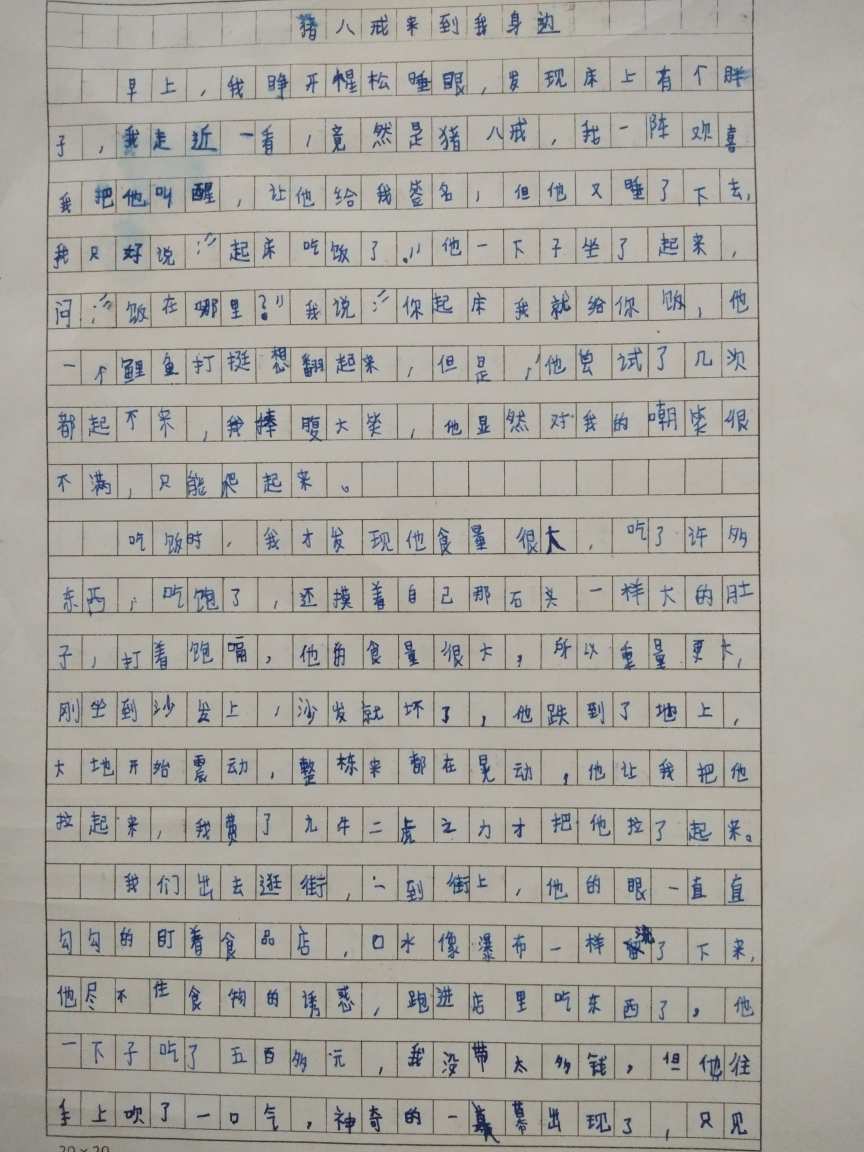 猪八戒来到我身边
早上，我睁开惺松睡眼，发现床上有个胖
子，我走近一看，竟然是猪八戒，我一阵欢喜
我把他叫醒，让他给我签名，但他又睡了下去，
我只好说：“起床吃饭了。”他一下子坐了起来，
问：“饭在哪里？”我说：“你起床我就给你饭，他
一个鲤鱼打挺想翻起来，但是，他尝试了几次
都起不来，我捧腹大笑，他显然对我的嘲笑很
不满，只能爬起来。
吃饭时，我才发现他食量很大，吃了许多
东西，吃饱了，还摸着自己那石头一样大的肚
子，打着饱嗝，他的食量很大，所以重量更大，
刚坐到沙发上，沙发就坏了，他跌到了地上，
大地开始震动，整栋来都在晃动，他让我把他
拉起来，我费了九牛二虎之力才把他拉了起来。
我们出去逛街，一到街上，他的眼一直直
勾勾的盯着食品店，口水像瀑布一样流了下来，
他尽不住食物的诱惑，跑进店里吃东西了。他
一下子吃了五百多元，我没带太多钱，但他往
手上吹了一口气，神奇的一幕出现了，只见
20×20